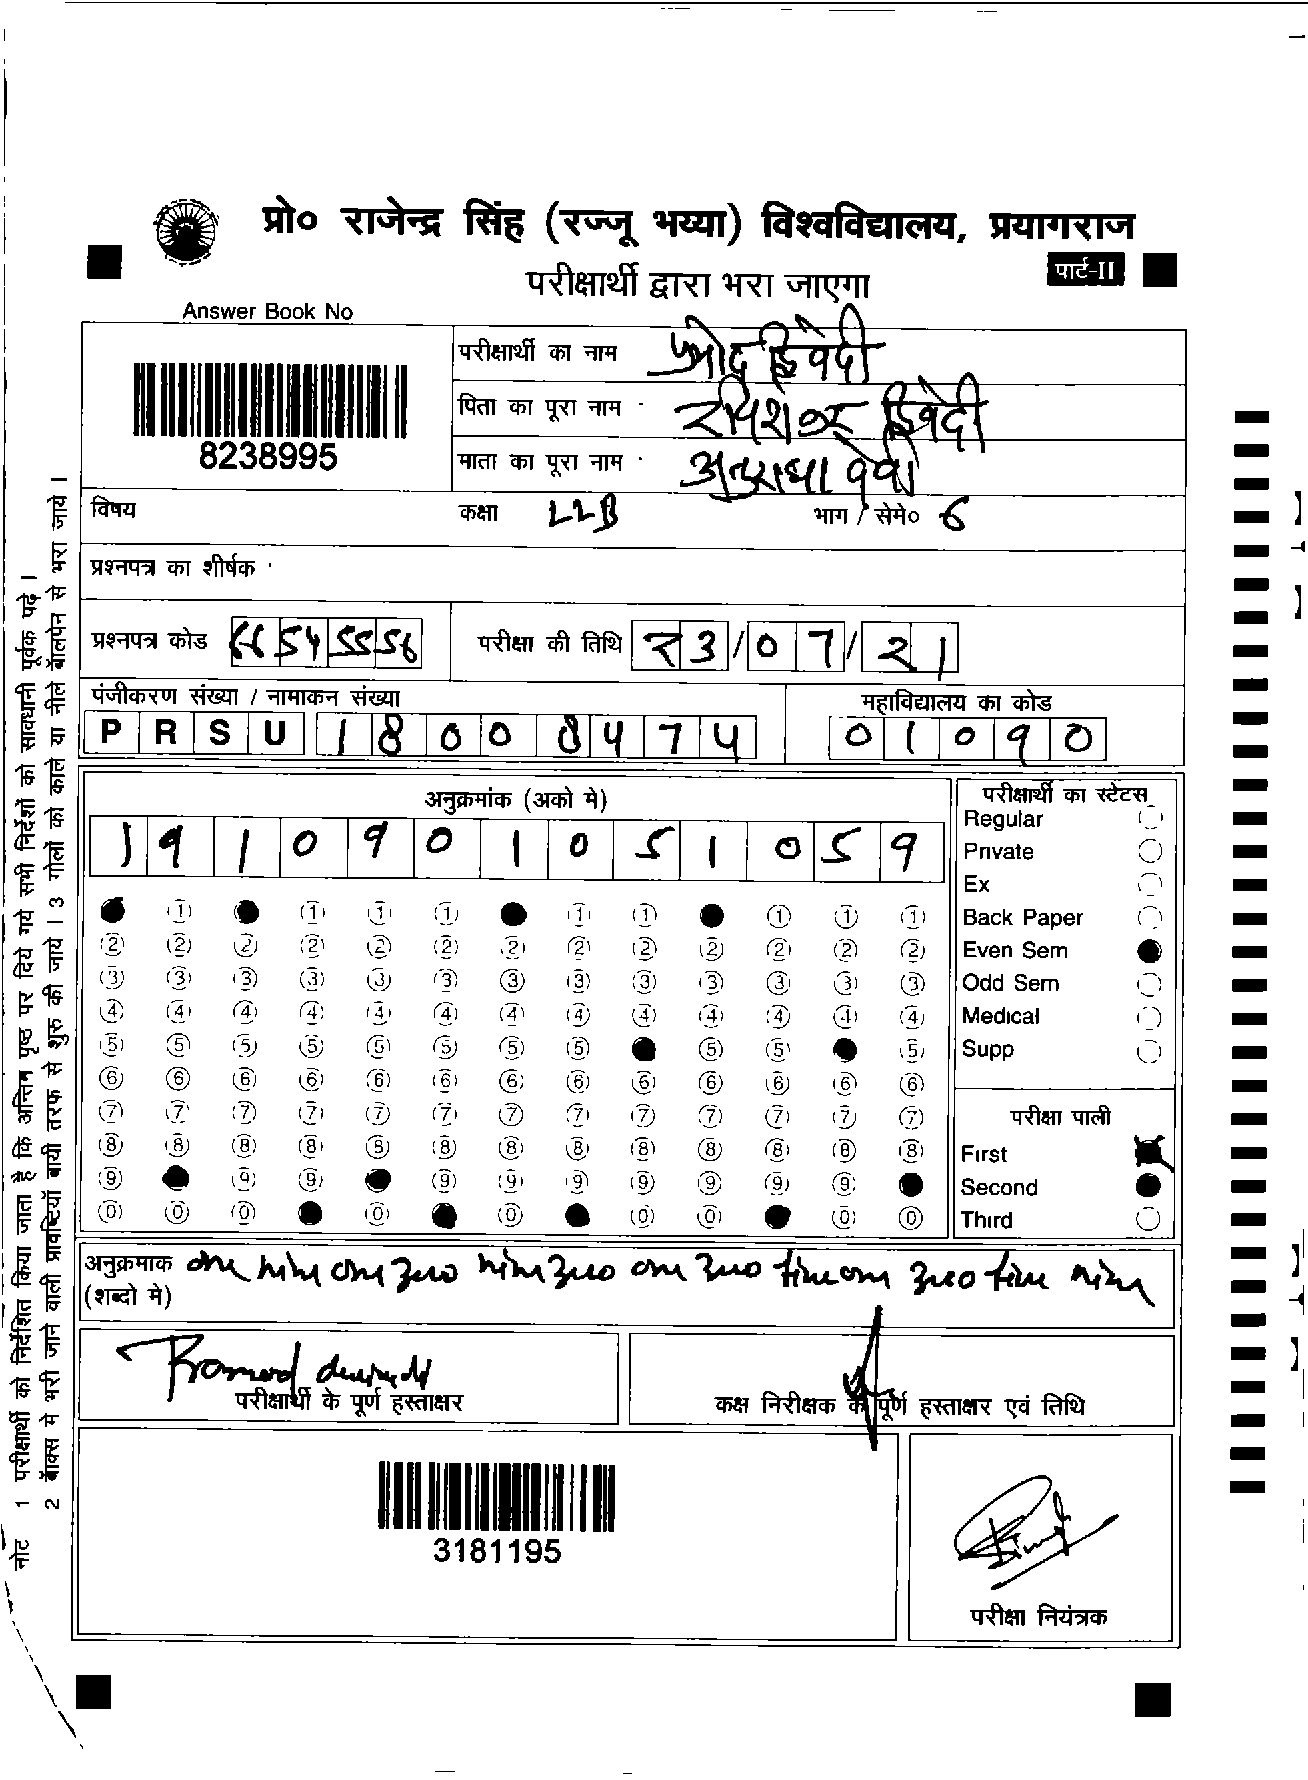 प्रो० राजेन्द्र सिंह (रज्जू भय्या) विश्वविद्यालय, प्रयागराज
परीक्षार्थी द्वारा भरा जाएगा
पार्ट-II
Answer Book No
8238995
परीक्षार्थी का नाम प्रमोद द्विवेदी
पिता का पूरा नाम रविशंकर द्विवेदी
माता का पूरा नाम अनुराधा देवी
विषय कक्षा LLB भाग / सेमे० 6
प्रश्नपत्र का शीर्षक
प्रश्नपत्र कोड 66 54 55 56 परीक्षा की तिथि 23/07/21
पंजीकरण संख्या / नामाकन संख्या महाविद्यालय का कोड
P R S U 1 8 0 0 8 4 7 4 0 1 0 9 0
अनुक्रमांक (अको मे)
1 9 1 0 9 0 1 0 5 1 0 5 9
1 1 1 1 1 1 1 1 1
2 2 2 2 2 2 2 2 2 2 2 2 2
3 3 3 3 3 3 3 3 3 3 3 3 3
4 4 4 4 4 4 4 4 4 4 4 4 4
5 5 5 5 5 5 5 5 5 5 5
6 6 6 6 6 6 6 6 6 6 6 6 6
7 7 7 7 7 7 7 7 7 7 7 7 7
8 8 8 8 8 8 8 8 8 8 8 8 8
9 9 9 9 9 9 9 9 9 9
0 0 0 0 0 0 0 0 0
परीक्षार्थी का स्टेटस
Regular
Private
Ex
Back Paper
Even Sem
Odd Sem
Medical
Supp
परीक्षा पाली
First
Second
Third
अनुक्रमाक one nine one zero nine zero one zero five one zero five nine
(शब्दो मे)
Pramod dwivedi
परीक्षार्थी के पूर्ण हस्ताक्षर
कक्ष निरीक्षक के पूर्ण हस्ताक्षर एवं तिथि
3181195
परीक्षा नियंत्रक
नोट 1 परीक्षार्थी को निर्देशित किया जाता है कि अन्तिम पृष्ठ पर दिये गये सभी निर्देशों को सावधानी पूर्वक पढ़े ।
2 बॉक्स मे भरी जाने वाली प्रविष्टियाँ बायी तरफ से शुरु की जाये । 3 गोलों को काले या नीले बॉलपेन से भरा जाये ।